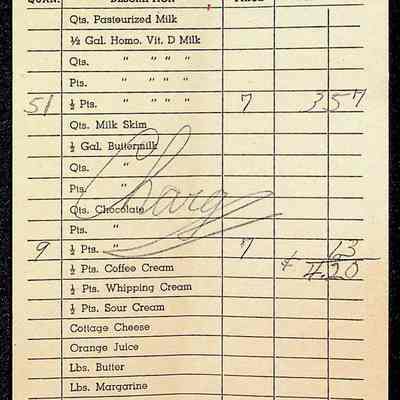 QUAN. DESCRIPTION PRICE
Qts. Pasteurized Milk
½ Gal. Homo. Vit. D Milk
Qts. " " " "
Pts. " " " "
51 ½ Pts. " " " " 7 3 57
Qts. Milk Skim
½ Gal. Buttermilk
Qts. "
Pts. "
Charg
Qts. Chocolate
Pts. "
9 ½ Pts. " 7 63
½ Pts. Coffee Cream 4.20
½ Pts. Whipping Cream
½ Pts. Sour Cream
Cottage Cheese
Orange Juice
Lbs. Butter
Lbs. Margarine